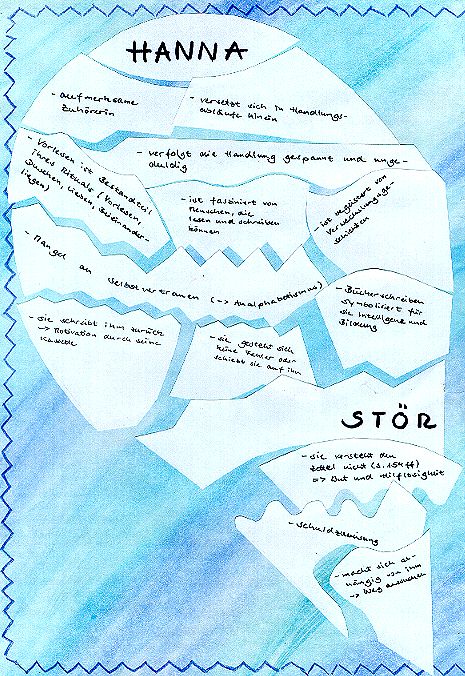 HANNA
- aufmerksame
Zuhörerin
- versetzt sich in Handlungs-
abläufe hinein
- verfolgt die Handlung gespannt und unge-
duldig
- Vorlesen ist Bestandteil
ihres Rituals (Vorlesen,
Duschen, Lieben, Beieinander-
liegen)
- ist fasziniert von
Menschen, die
lesen und schreiben
können
- ist verärgert von
Verwechslungsge-
schichten
- Mangel an Selbstvertrauen (-> Analphabetismus)
- Bücherschreiben
symbolisiert für
sie Intelligenz und
Bildung
- sie schreibt ihm zurück
-> Motivation durch seine
Kassette
- sie gesteht sich
keine Fehler oder
schiebt sie auf ihn
STÖR
- sie versteht den
Zettel nicht (S. 154 ff)
=> Wut und Hilflosigkeit
- Schuldzuweisung
- macht sich ab-
hängig von ihm
-> Weg